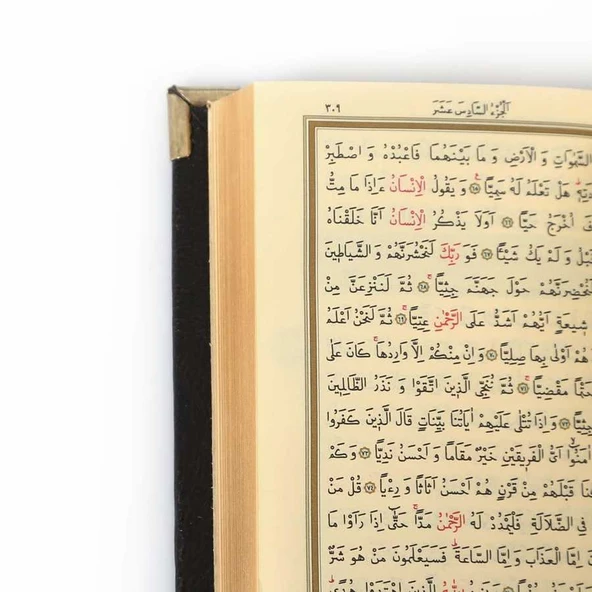 ٣٠٩ الْجُزْءُ السَّادِسَ عَشَرَ
السَّمٰوَاتِ وَ الْاَرْضِ وَ مَا بَيْنَهُمَا فَاعْبُدْهُ وَ اصْطَبِرْ
هَلْ تَعْلَمُ لَهُ سَمِيًّا ﴿٦٥﴾ وَ يَقُولُ الْاِنْسَانُ ءَاِذَا مَا مِتُّ
اُخْرَجُ حَيًّا ﴿٦٦﴾ اَوَلَا يَذْكُرُ الْاِنْسَانُ اَنَّا خَلَقْنَاهُ
وَ لَمْ يَكُ شَيْئًا ﴿٦٧﴾ فَوَ رَبِّكَ لَنَحْشُرَنَّهُمْ وَ الشَّيَاطِينَ
لَنُحْضِرَنَّهُمْ حَوْلَ جَهَنَّمَ جِثِيًّا ﴿٦٨﴾ ثُمَّ لَنَنْزِعَنَّ مِنْ
شِيعَةٍ اَيُّهُمْ اَشَدُّ عَلَى الرَّحْمٰنِ عِتِيًّا ﴿٦٩﴾ ثُمَّ لَنَحْنُ اَعْلَمُ
هُمْ اَوْلٰى بِهَا صِلِيًّا ﴿٧٠﴾ وَ اِنْ مِنْكُمْ اِلَّا وَارِدُهَا كَانَ عَلٰى
مَقْضِيًّا ﴿٧١﴾ ثُمَّ نُنَجِّي الَّذِينَ اتَّقَوْا وَ نَذَرُ الظَّالِمِينَ
جِثِيًّا ﴿٧٢﴾ وَ اِذَا تُتْلٰى عَلَيْهِمْ اٰيَاتُنَا بَيِّنَاتٍ قَالَ الَّذِينَ كَفَرُوا
اٰمَنُوا اَىُّ الْفَرِيقَيْنِ خَيْرٌ مَقَامًا وَ اَحْسَنُ نَدِيًّا ﴿٧٣﴾ وَ كَمْ
قَبْلَهُمْ مِنْ قَرْنٍ هُمْ اَحْسَنُ اَثَاثًا وَ رِءْيًا ﴿٧٤﴾ قُلْ مَنْ
فِي الضَّلَالَةِ فَلْيَمْدُدْ لَهُ الرَّحْمٰنُ مَدًّا حَتّٰى اِذَا رَاَوْا مَا
اِمَّا الْعَذَابَ وَ اِمَّا السَّاعَةَ فَسَيَعْلَمُونَ مَنْ هُوَ شَرٌّ
الَّذِينَ اهْتَدَوْا هُدًى